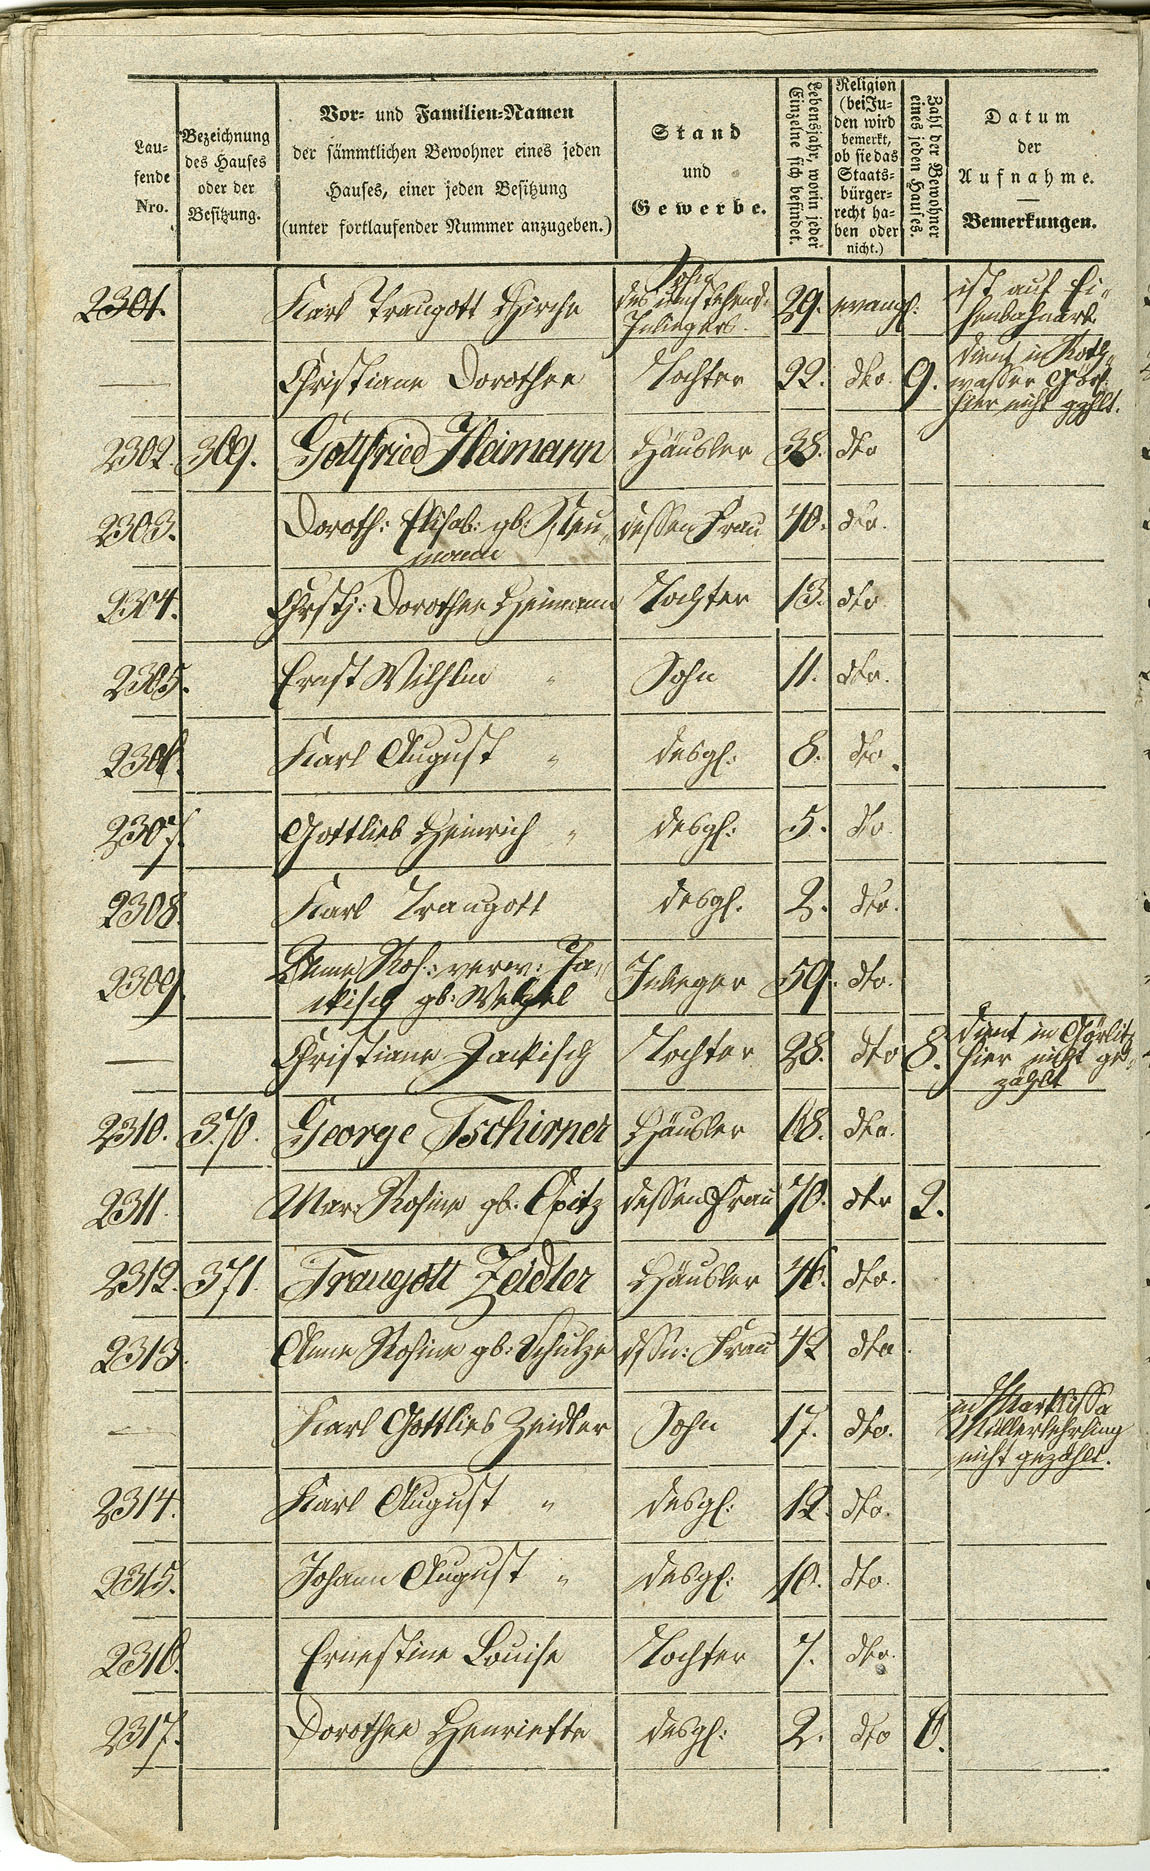 Lau-
fende
Nro.
Bezeichnung
des Hauses
oder der
Besitzung.
Vor- und Familien-Namen
der sämmtlichen Bewohner eines jeden
Hauses, einer jeden Besitzung
(unter fortlaufender Nummer anzugeben.)
Stand
und
Gewerbe.
Lebensjahr, worin jeder
Einzelne sich befindet.
Religion
(bei Ju-
den wird
bemerkt,
ob sie das
Staats-
bürger-
recht ha-
ben oder
nicht.)
Zahl der Bewohner
eines jeden Hauses.
Datum
der
Aufnahme.
Bemerkungen.
2301. Karl Traugott Hirche Sohn des umstehend. Inliegers. 29. evangl: ist auf Ei-
senbahnarb.
— Christiane Dorothee Tochter 22. dto. 9. dient in Roth-
wasser
hier nicht gzhlt.
2302. 369. Gottfried Heimann Häusler 38. dto
2303. Doroth: Elisab: gb: Neu-
mann dessen Frau 40. dto.
2304. Chrsth: Dorothee Heimann Tochter 13. dto
2305. Ernst Wilhlm " Sohn 11. dto.
2306. Karl August " desgl: 8. dto.
2307. Gottlieb Heinrich " desgl: 5. dto.
2308. Karl Traugott desgl. 2. dto.
2309. Anne Ros: verw: Ja-
ckisch gb: Wetzel Inlieger 59. dto.
— Christiane Jackisch Tochter 28. dto 8. dient in Görlitz
hier nicht ge-
zählt
2310. 370. George Tschirner Häusler 68. dto.
2311. Mar: Rosine gb. Opitz dessen Frau 70. dto 2.
2312. 371. Traugott Zeidler Häusler 46. dto.
2313. Anne Rosine gb: Schulze dssn: Frau 42 dto.
— Karl Gottlieb Zeidler Sohn 17. dto. in Marklissa
Müllerlehrling
nicht gezählt.
2314. Karl August " desgl: 12. dto.
2315. Johann August " desgl: 10. dto.
2316. Ernestine Louise Tochter 7. dto.
2317. Dorothee Henriette desgl: 2. dto 6.